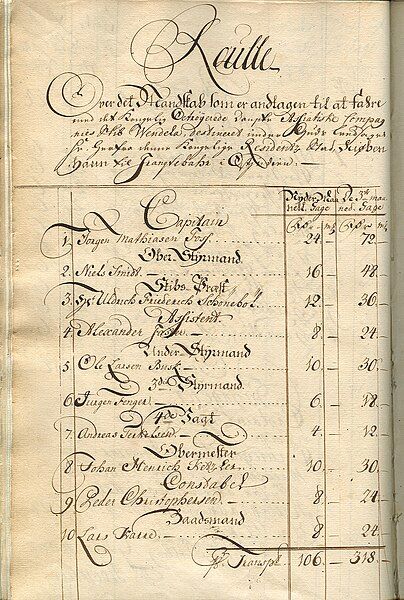 Roulle
Over det Mandskab som er andtagen til at fare
med det Kongelig Octrojerede Danske Asiatiske Compag-
nies Skib Wendela, Destineret
fra Kongelige Residentz Stad, Kiøben-
havn til Tranqvebahr i Ostindien.
Ryder Maa- De 3de maa-
ned. Gage ned. Gage
Capitain
1. Jørgen Mathiasen 24 72
Over Styrmand
2. Niels Smidt 16 48
Skibs Præst
3. Hr Uldrich Friederich Schönebol 12 36
Assistent
4. Alexander 8 24
Under Styrmand
5 Ole Larsen Busk 10 30
3die Styrmand
6 Jurgen Fenger 6 18
4de Vagt
7. Andreas 4 12
Obermester
8 Johan Henrich 10 30
Constabel
9 Peder Christophersen 8 24
Baadsmand
10 Lars 8 24
Transpt 106 318